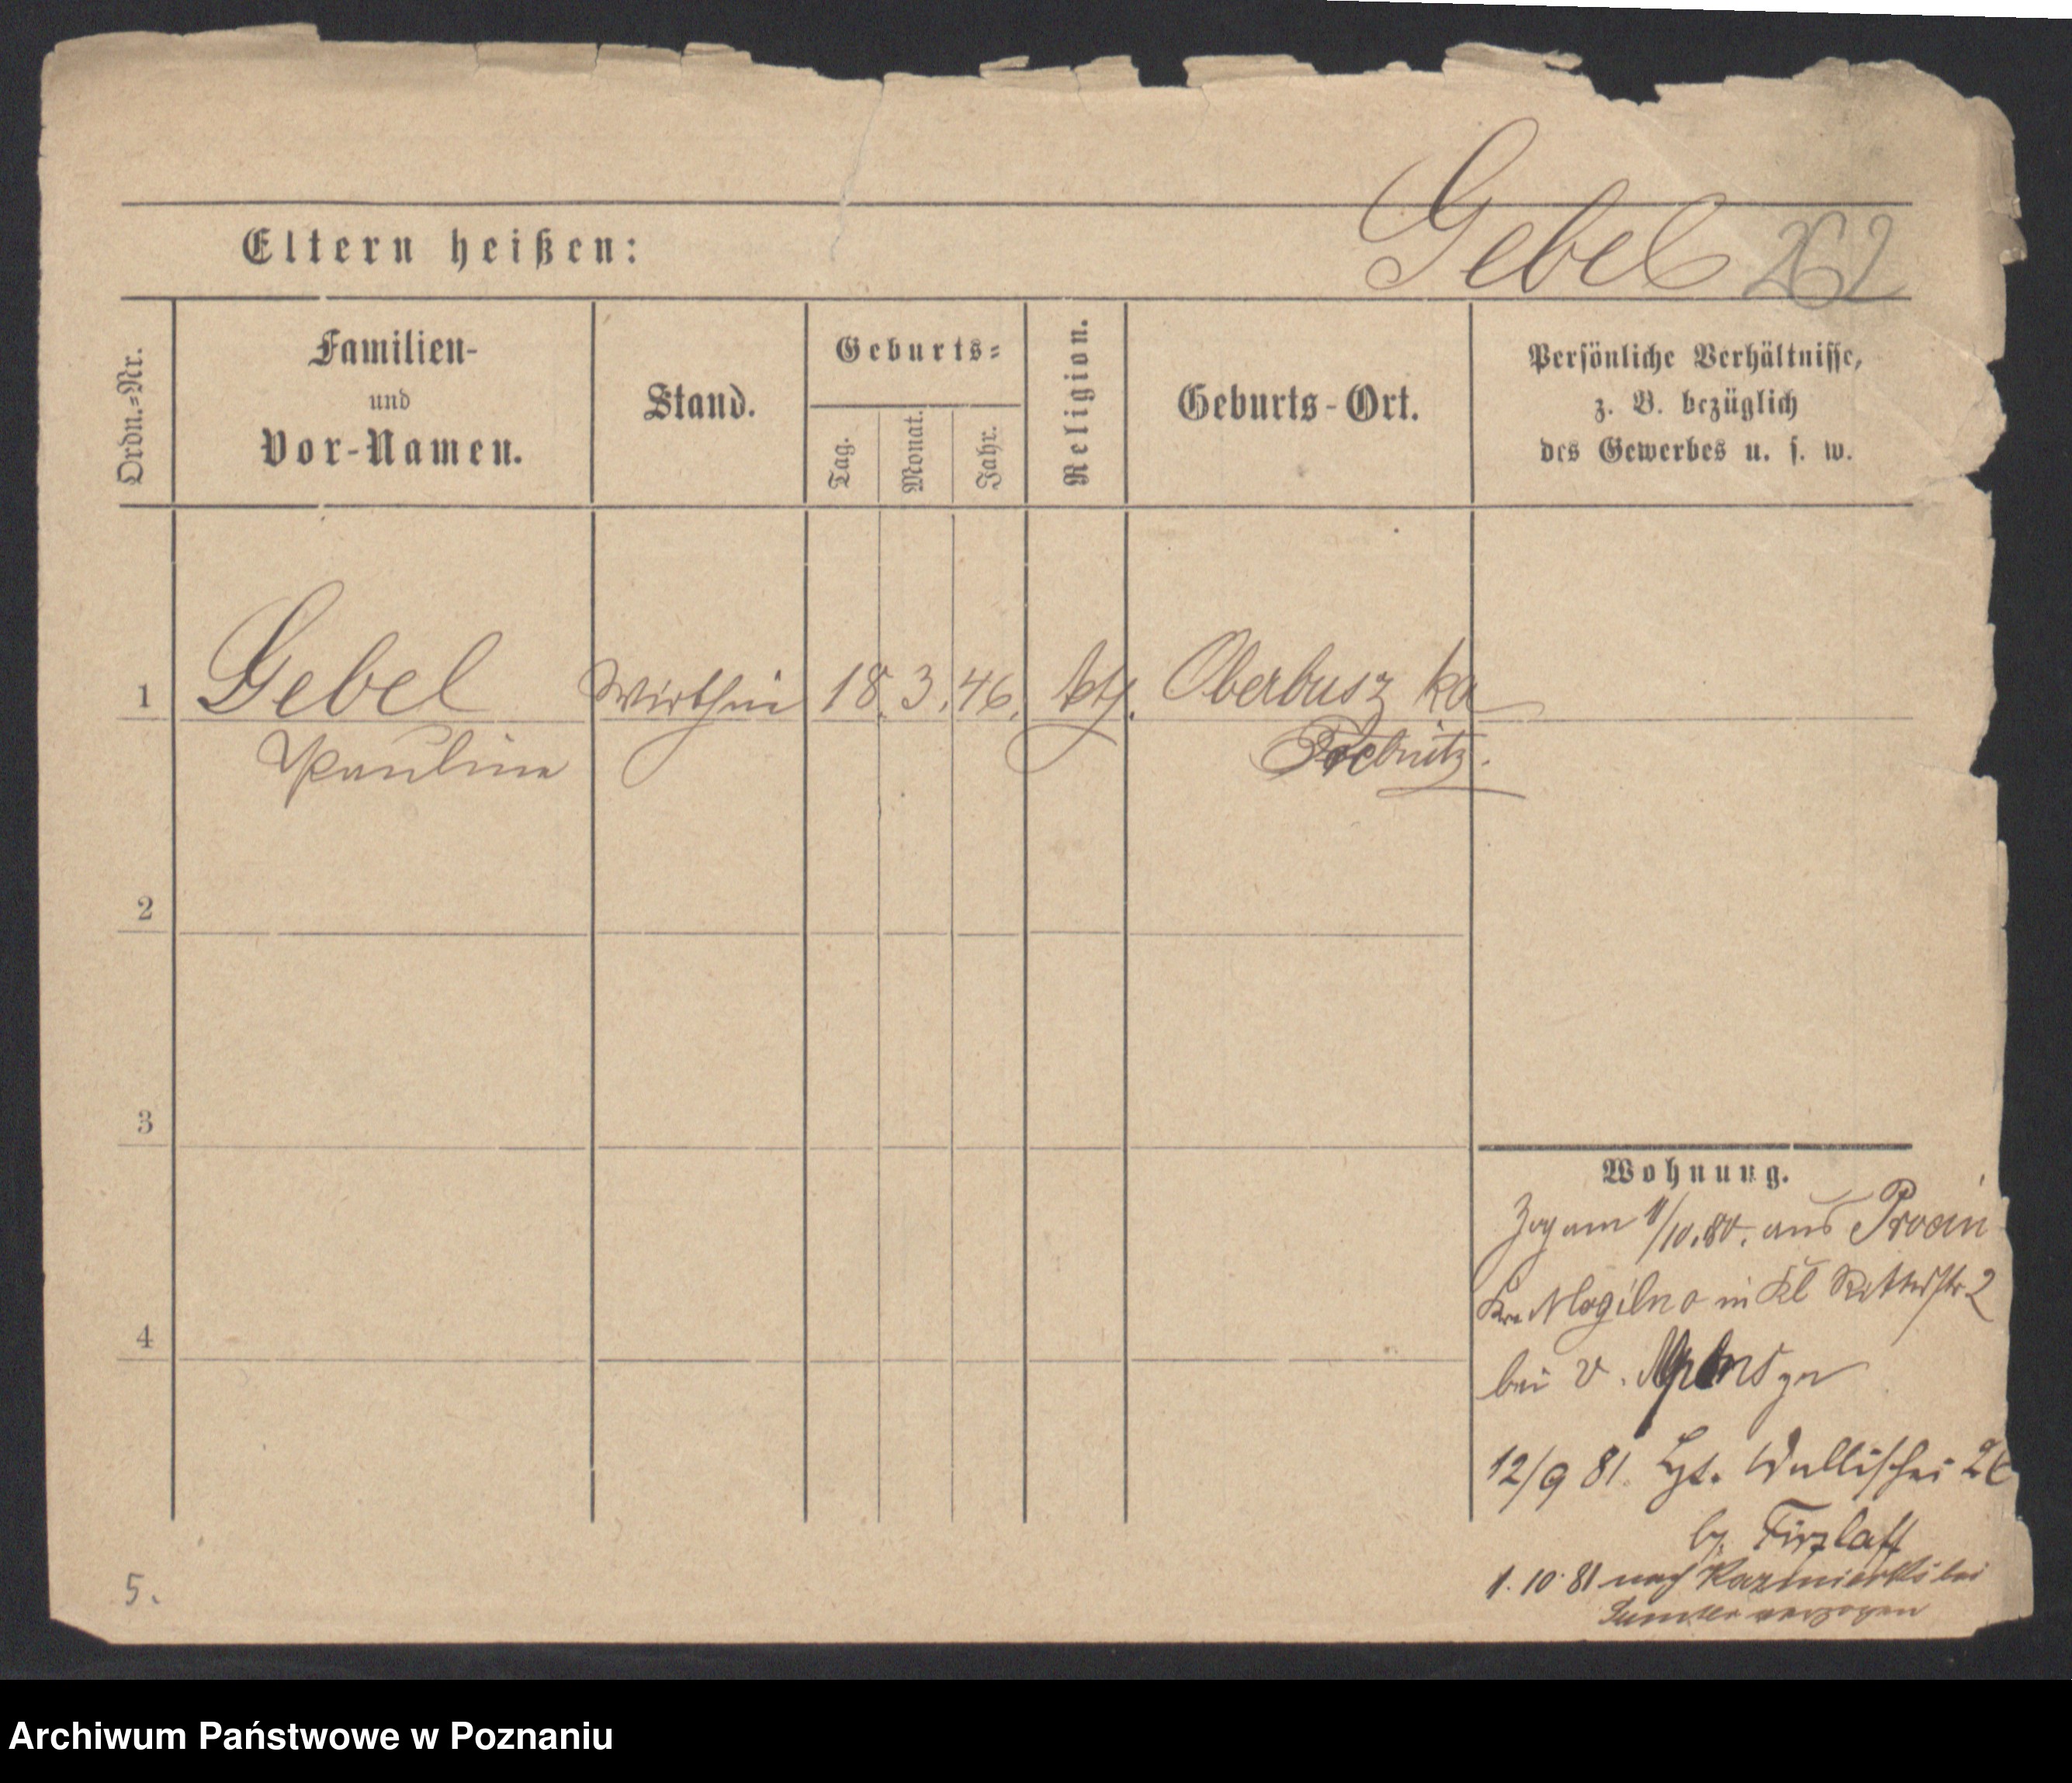 Gebel 262
Eltern heißen:
Ordn.=Nr.
Familien-
und
Vor-Namen.
Stand.
Geburts=
Tag.
Monat.
Jahr.
Religion.
Geburts-Ort.
Persönliche Verhältnisse,
z. B. bezüglich
des Gewerbes u. s. w.
1 Gebel Wirthin 18. 3. 46. kth. Oberbusz ka
Paulina Trebnitz.
2
3
Wohnung.
Zog am 11/10.80. aus
Kr. Mogilno in Kl Ritterstr 2
4
bei v.
12/9 81. Wallischei 26
b. Tirzlaff
5.
1. 10. 81 nach bei
verzogen
Archiwum Państwowe w Poznaniu